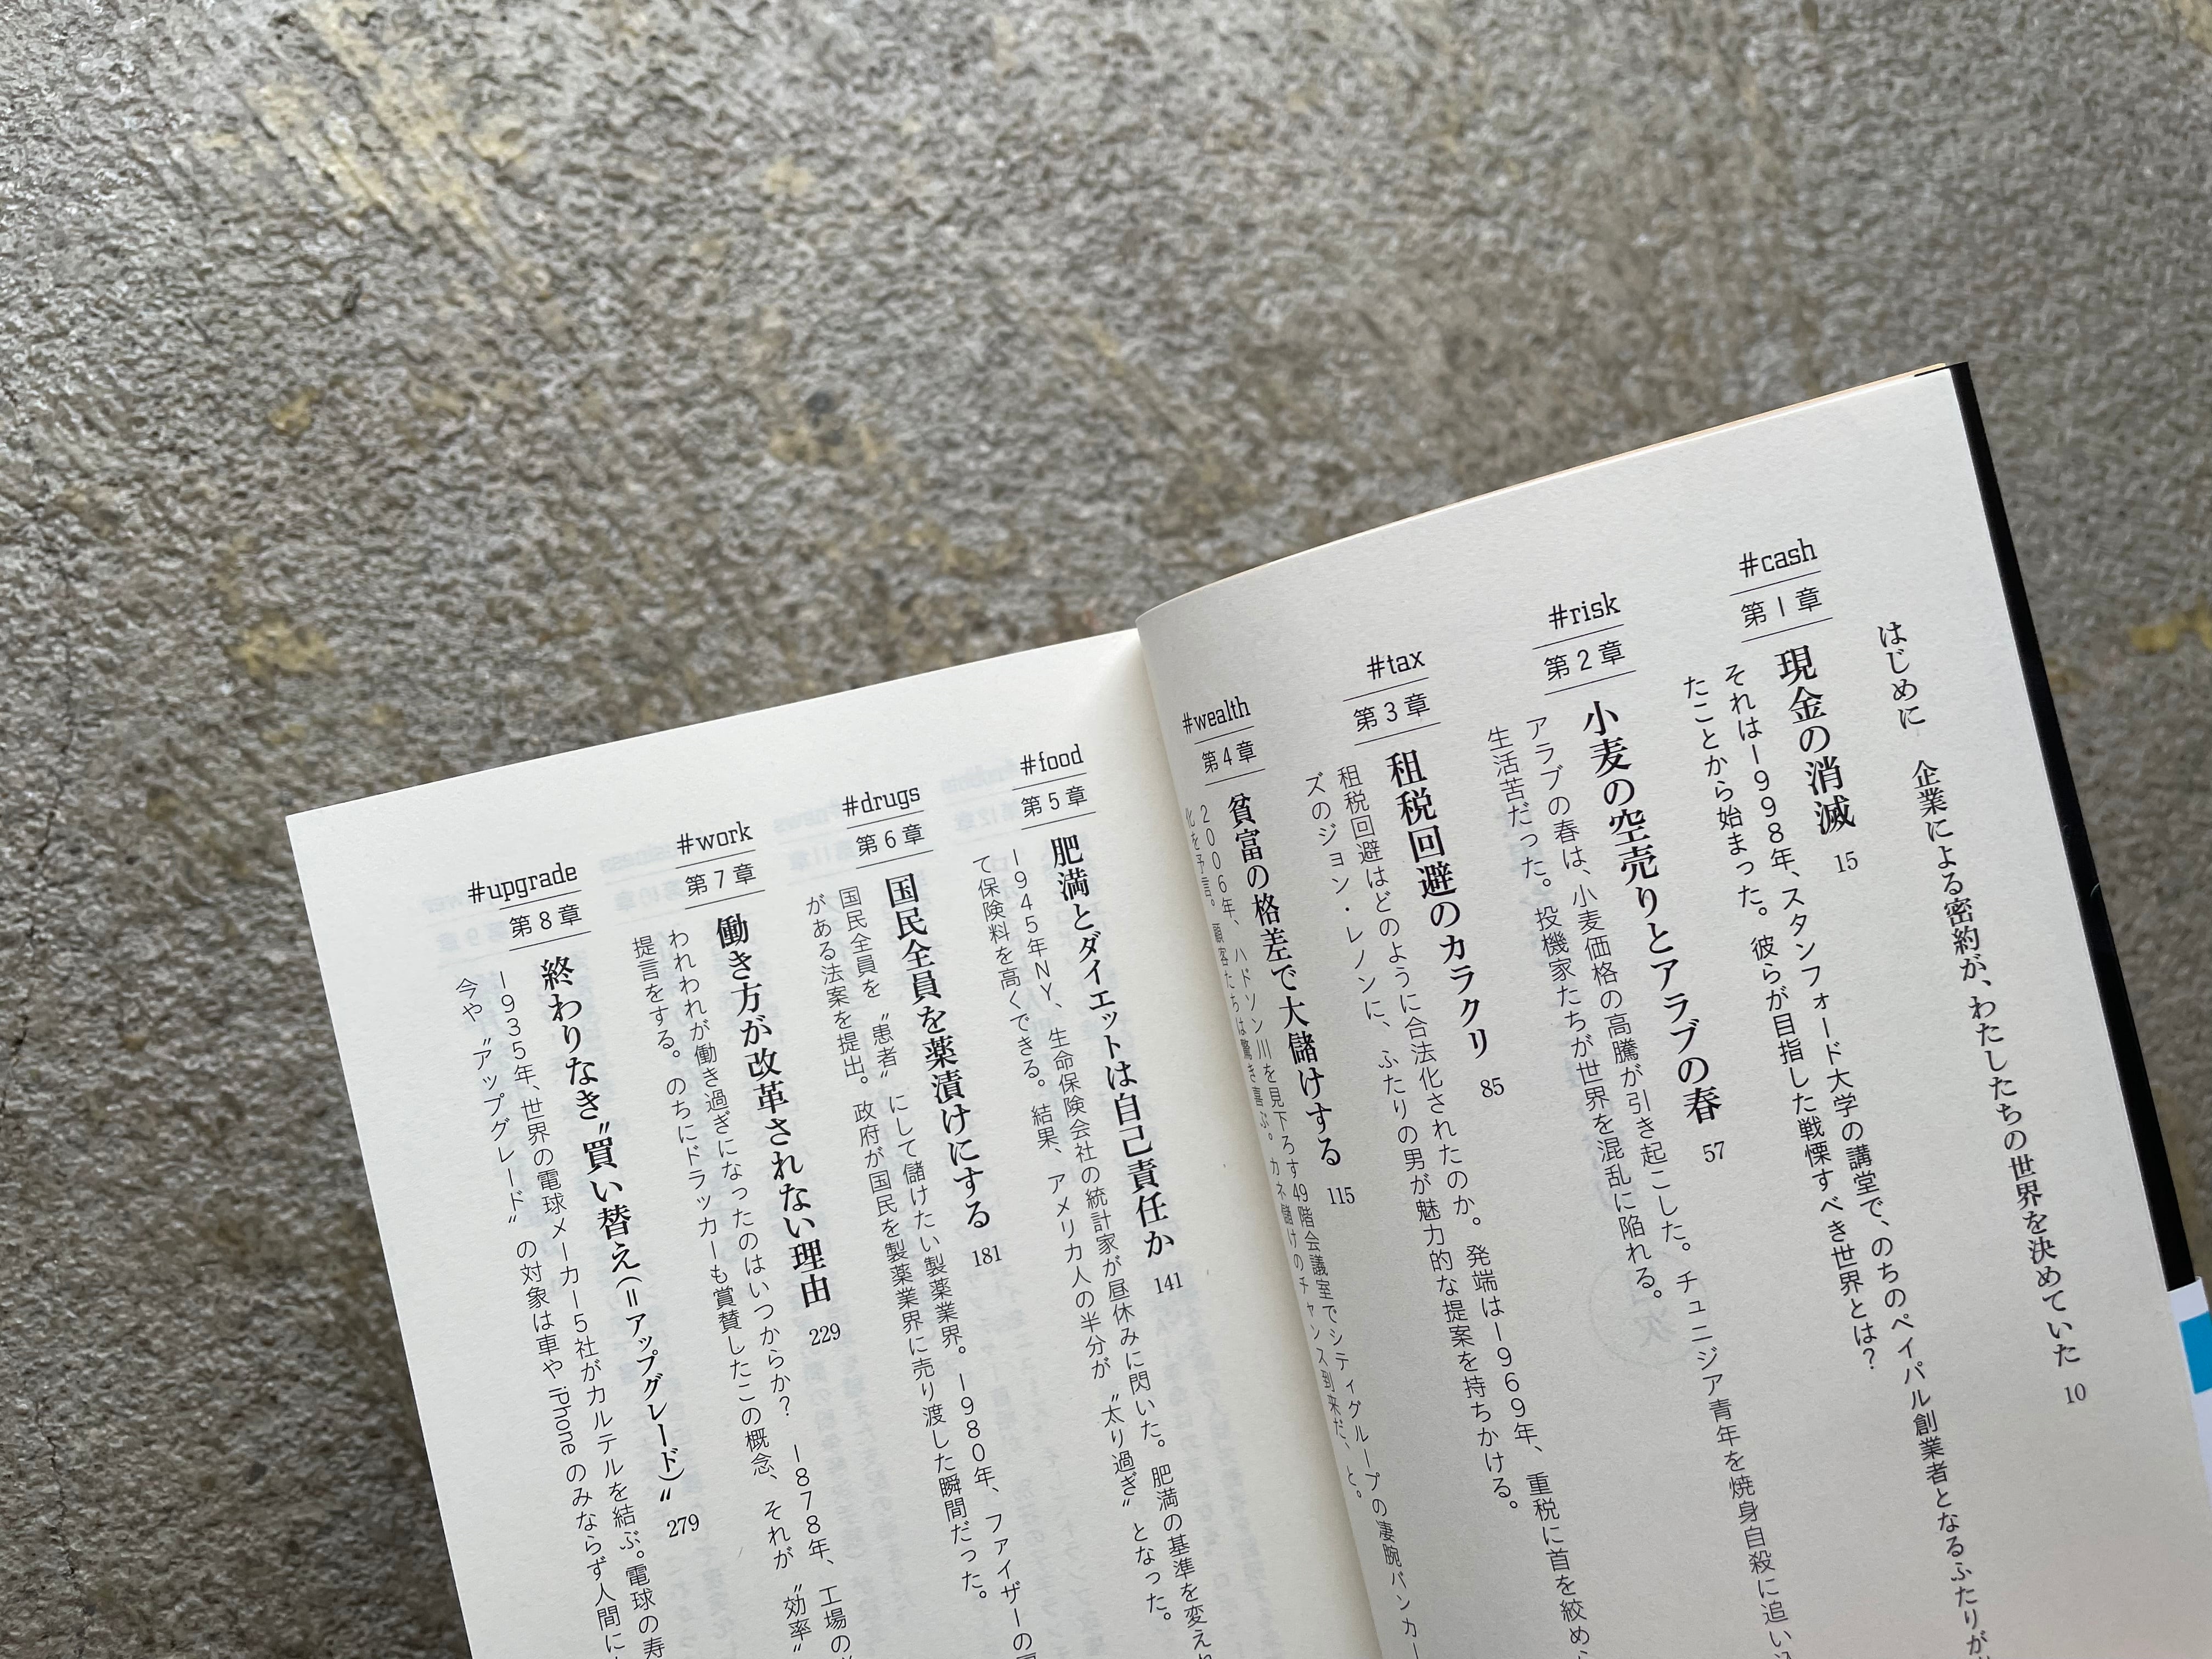 はじめに　企業による密約が、わたしたちの世界を決めていた 10
#cash
第1章
現金の消滅 15
それは1998年、スタンフォード大学の講堂で、のちのペイパル創業者となるふたりが
たことから始まった。彼らが目指した戦慄すべき世界とは?
#risk
第2章
小麦の空売りとアラブの春 57
アラブの春は、小麦価格の高騰が引き起こした。チュニジア青年を焼身自殺に追い
生活苦だった。投機家たちが世界を混乱に陥れる。
#tax
第3章
租税回避のカラクリ 85
租税回避はどのように合法化されたのか。発端は1969年、重税に首を絞め
ズのジョン・レノンに、ふたりの男が魅力的な提案を持ちかける。
#wealth
第4章
貧富の格差で大儲けする 115
2006年、ハドソン川を見下ろす49階会議室でシティグループの凄腕バンカー
化を予言。顧客たちは驚き喜ぶ。カネ儲けのチャンス到来だ、と。
#food
第5章
肥満とダイエットは自己責任か 141
1945年NY、生命保険会社の統計家が昼休みに閃いた。肥満の基準を変え
て保険料を高くできる。結果、アメリカ人の半分が〝太り過ぎ〟となった。
#drugs
第6章
国民全員を薬漬けにする 181
国民全員を〝患者〟にして儲けたい製薬業界。1980年、ファイザーの
がある法案を提出。政府が国民を製薬業界に売り渡した瞬間だった。
#work
第7章
働き方が改革されない理由 229
われわれが働き過ぎになったのはいつからか?　1878年、工場の
提言をする。のちにドラッカーも賞賛したこの概念、それが〝効率〟
#upgrade
第8章
終わりなき〝買い替え(=アップグレード)〟 279
1935年、世界の電球メーカー5社がカルテルを結ぶ。電球の寿
今や〝アップグレード〟の対象は車やiPhoneのみならず人間に